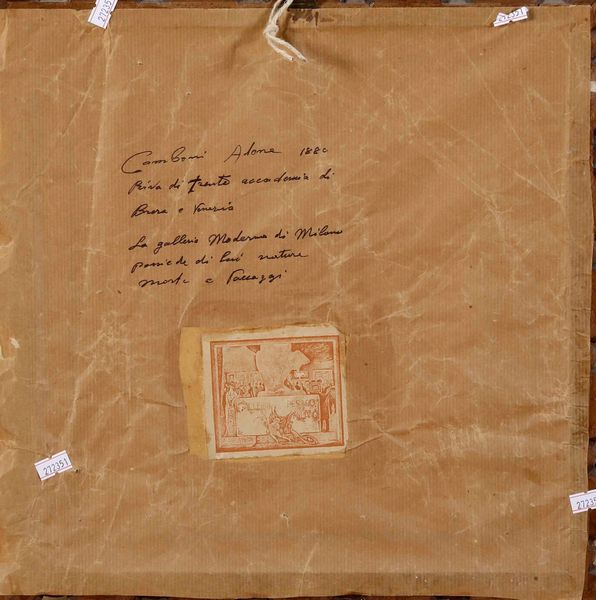 27235
272351
Comboni Adone 1880
Riva di trento accademia di
Brera e Venezia
La galleria Moderna di Milano
possiede di lui nature
morte e Paesaggi
272351
27235